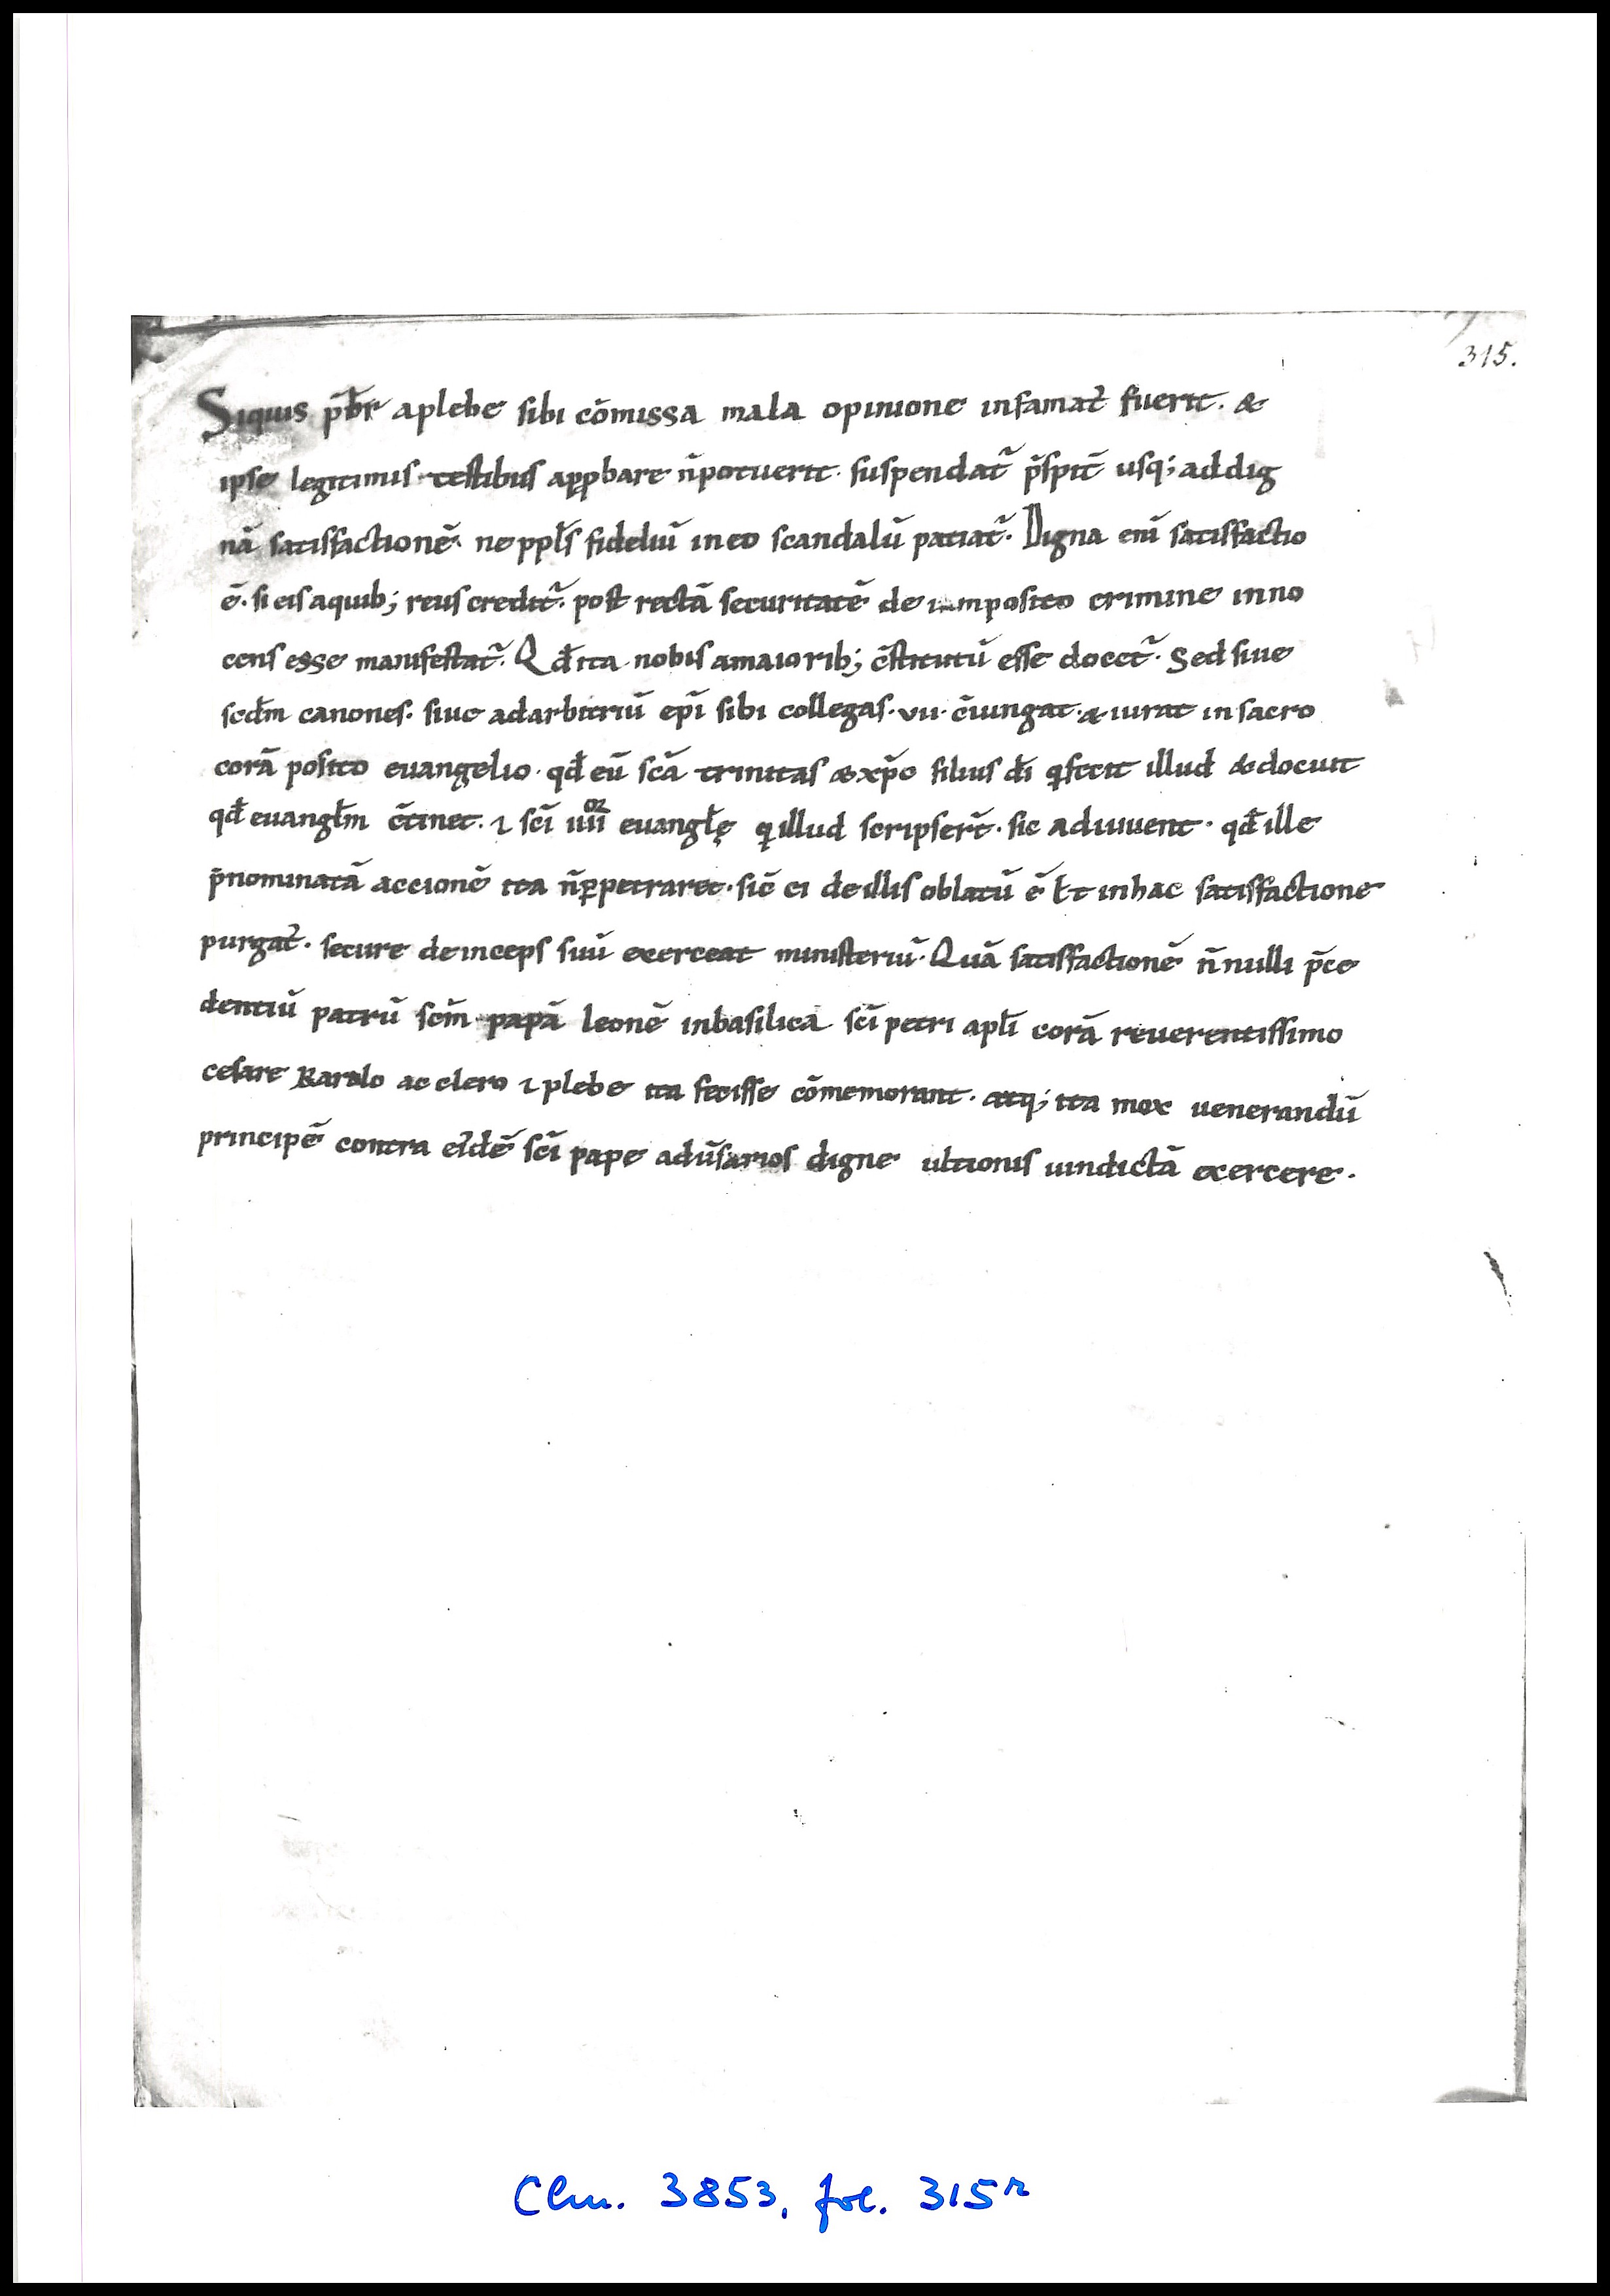 315.
Siquis pb̄r aplebe sibi cōmissa mala opinione infamat᷒ fuerit. &
ipse legitimis testibus apꝓbare n̄potuerit. suspendat᷒ p̄sƀit̄ usq; addig
nā satisfactionē. ne ppłs fideliū ineo scandalū patiat᷒. Digna eni̅ satisfactio
ē. si eis aquib; reus credit᷒. post rectā securitatē de imposito crimine inno
cens esse manifestat᷒. Qđ ita nobis amaiorib; c̄stitutū esse docet᷒. Sed siue
scđm canones. siue adarbitriū epi̅ sibi collegas. vii. c̄iungat. & iurat in sacro
corā posito euangelio. qđ eū scā trinitas & xp̄c filius di̅ q̇ fecit illud & docuit
qđ euangłm c̄tinet. ⁊ sci̅ iiii᷒or euangłę q̇ illud scripser̄t. sic adiuuent. qđ ille
p̄nominatā accionē ita n̄ꝑpetraret. sic̄ ei de illis oblatū ē Et inhac satisfactione
purgat᷒. secure deinceps suū exerceat ministeriū. Quā satisfactionē n̄nulli p̄ce
dentiū patrū scm̄ papā leonē inbasilica sci̅ petri apłi corā reuerentissimo
cesare Karolo ac clero ⁊ plebe ita fecisse cōmemorant. atq; ita mox uenerandū
principē contra ei᷒dē sci̅ pape adūsarios digne ultionis uindictā exercere.
Clm. 3853, fol. 315ʳ